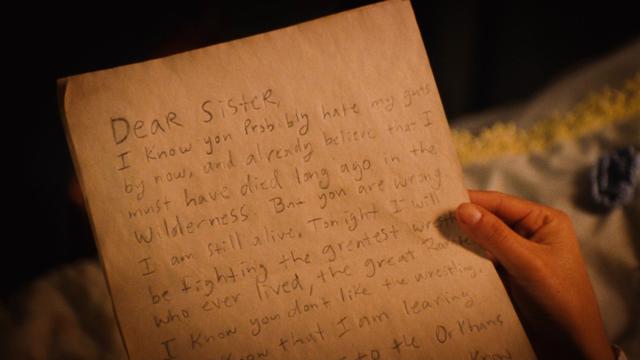 Dear Sister,
I know you Probibly hate my guts
by now, and already believe that I
must have died long ago in the
Wilderness But you are wrong
I am still alive. Tonight I will
be fighting the greatest
who ever lived, the great
I know you don't like the wrestling.
know that I am leaving
to the Orphans
Know